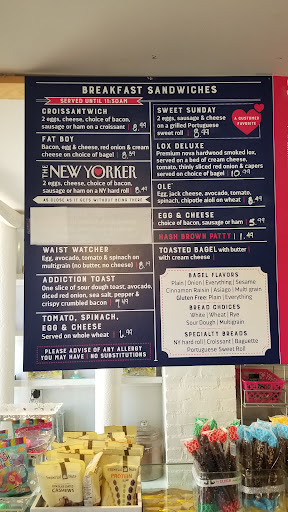 BREAKFAST SANDWICHES
SERVED UNTIL 11:30AM
CROISSANTWICH
2 eggs, cheese, choice of bacon,
sausage or ham on a croissant | 8.99
FAT BOY
Bacon, egg & cheese, red onion & cream
cheese on choice of bagel | 8.99
THE NEW YORKER
2 eggs, cheese, choice of bacon,
sausage or ham on a NY hard roll | 8.49
AS CLOSE AS IT GETS WITHOUT BEING THERE
WAIST WATCHER
Egg, avocado, tomato & spinach on
multigrain (no butter, no cheese) |
ADDICTION TOAST
One slice of sour dough toast, avocado,
diced red onion, sea salt, pepper &
crispy crumbled bacon |
TOMATO, SPINACH,
EGG & CHEESE
Served on whole wheat | 6.99
PLEASE ADVISE OF ANY ALLERGY
YOU MAY HAVE | NO SUBSTITUTIONS
SWEET SUNDAY
2 eggs, sausage & cheese
on a grilled Portuguese
sweet roll | 8.99
A CUSTOMER
FAVORITE
LOX DELUXE
Premium nova hardwood smoked lox,
served on a bed of cream cheese,
tomato, thinly sliced red onion & capers
served on choice of bagel | 10.99
OLE
Egg, jack cheese, avocado, tomato,
spinach, chipotle aioli on wheat | 8.49
EGG & CHEESE
choice of bacon, sausage or ham | 5.99
HASH BROWN PATTY | 1.49
TOASTED BAGEL with butter |
with cream cheese |
BAGEL FLAVORS
Plain | Onion | Everything | Sesame
Cinnamon Raisin | Asiago | Multi grain
Gluten Free: Plain | Everything
BREAD CHOICES
White | Wheat | Rye
Sour Dough | Multigrain
SPECIALTY BREADS
NY hard roll | Croissant | Baguette
Portuguese Sweet Roll
CASHEWS